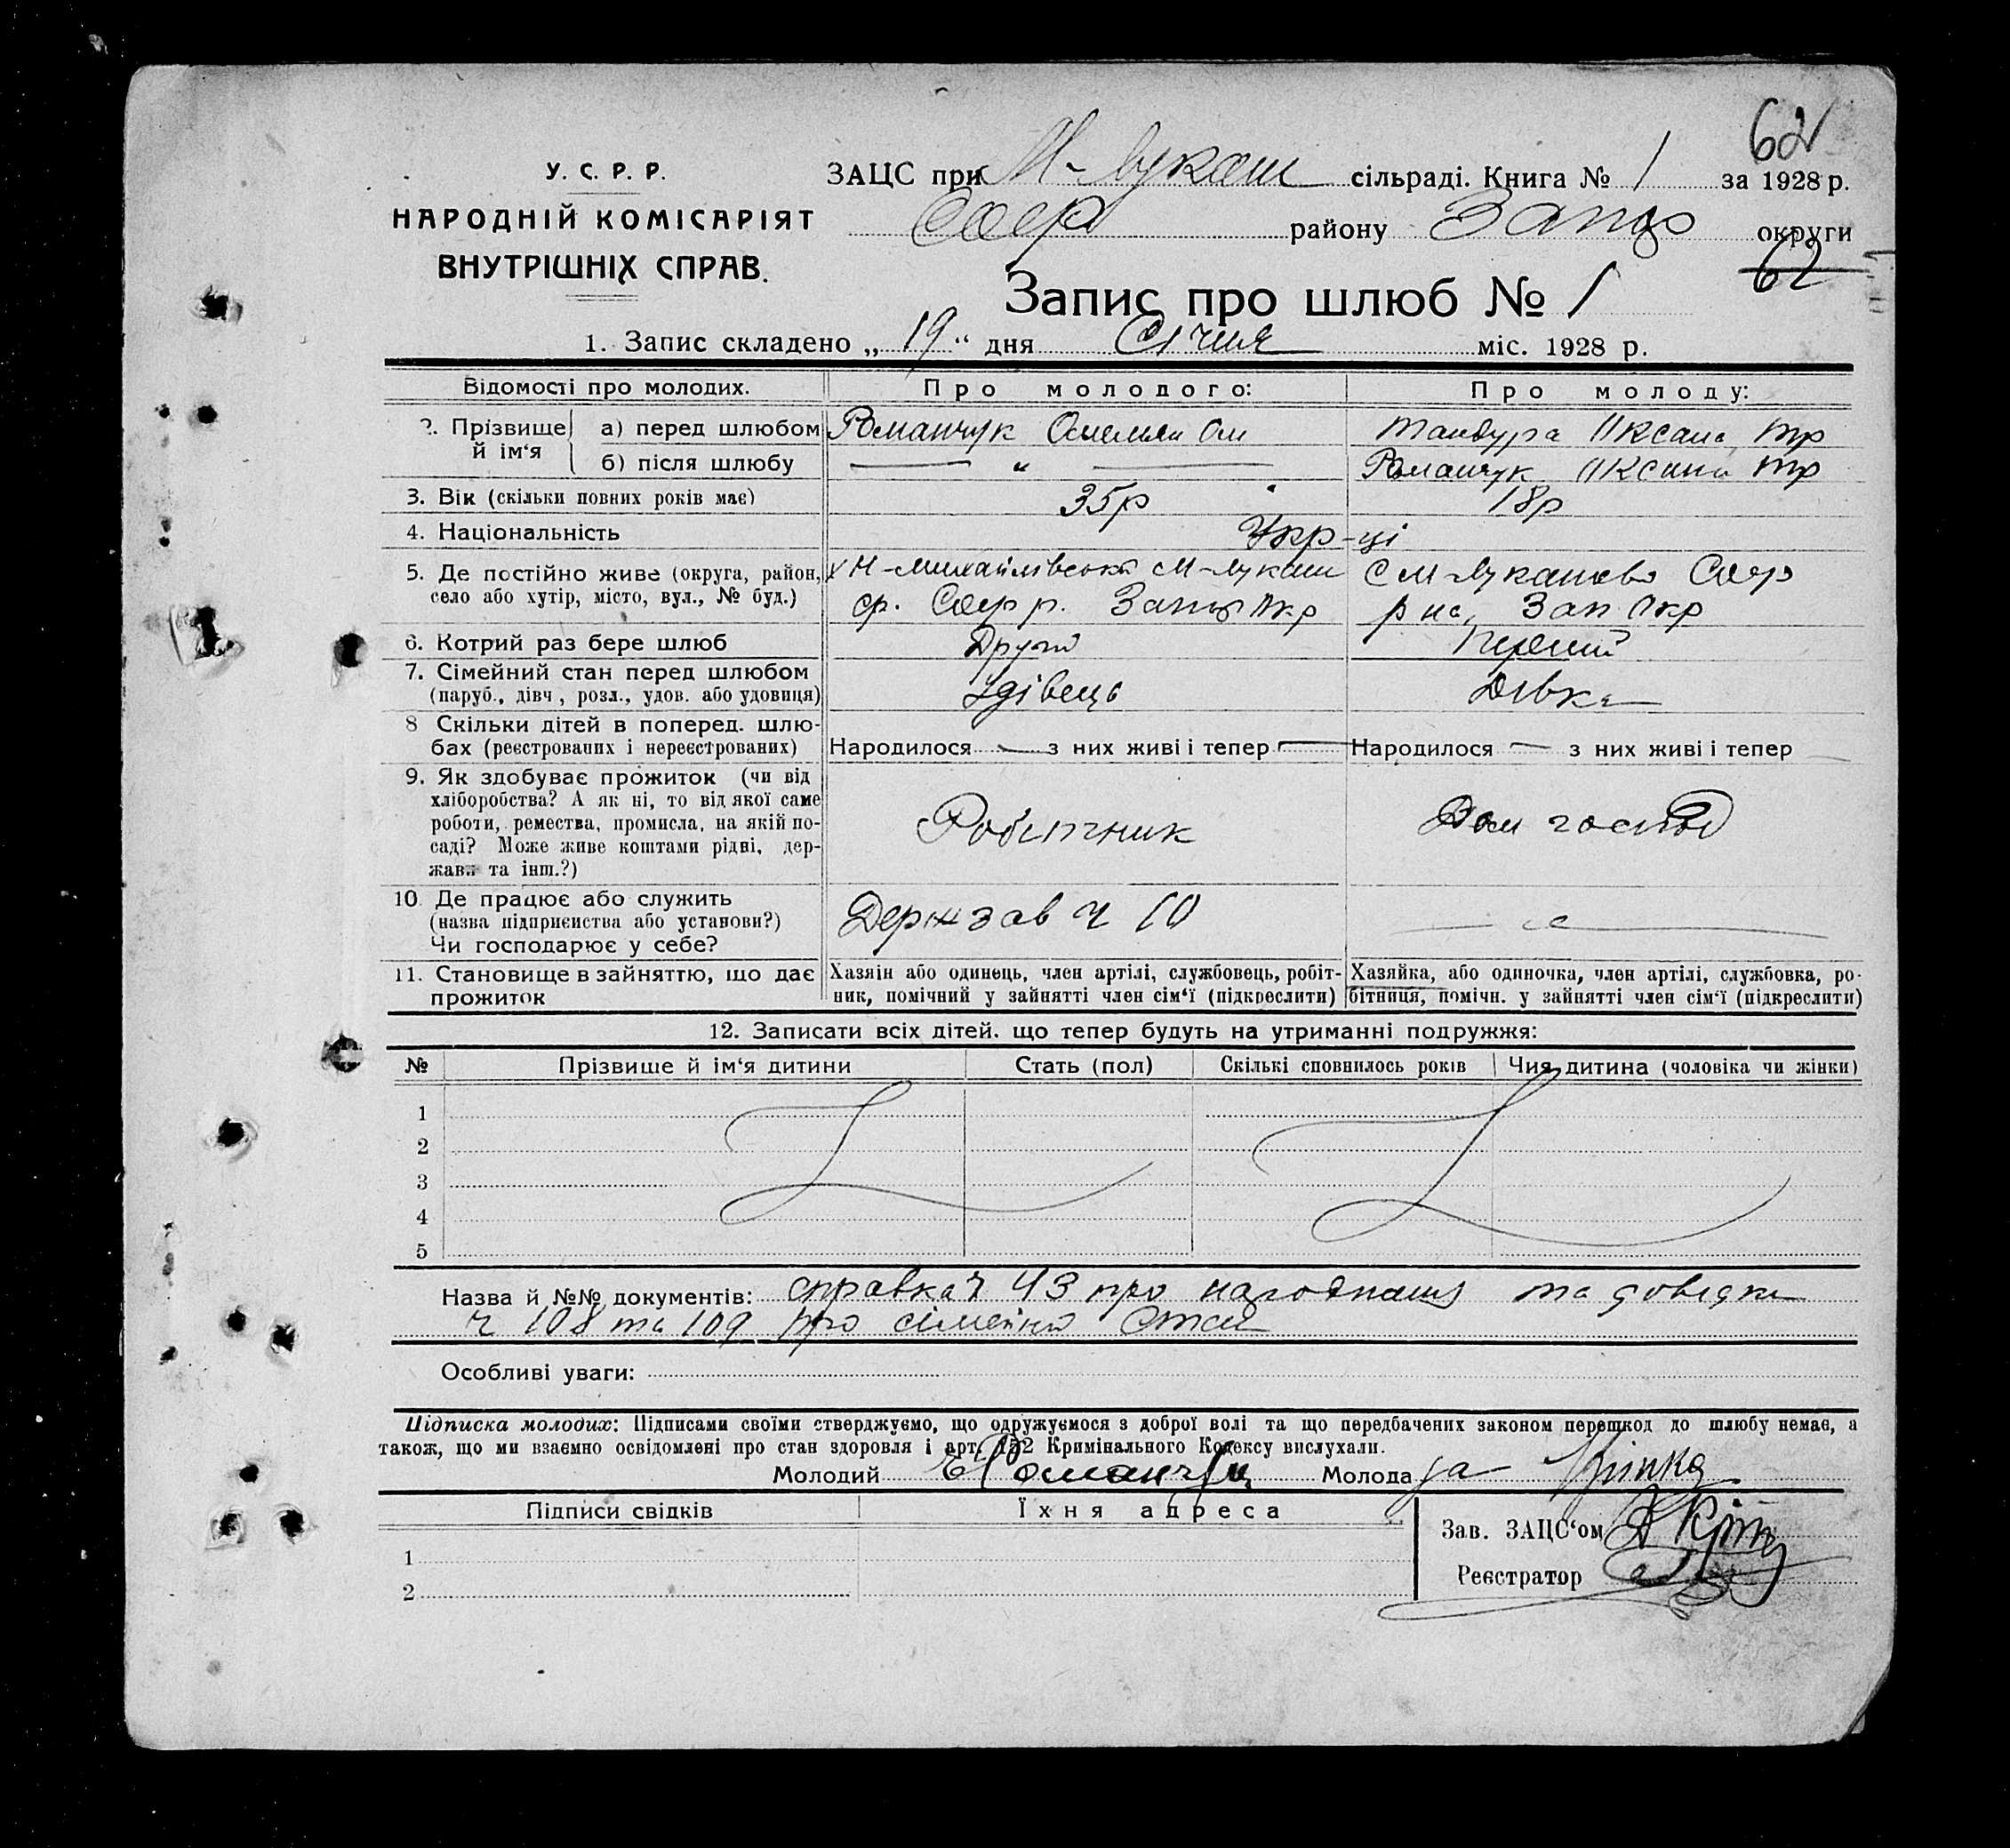 62
У. С. Р. Р.
НАРОДНІЙ КОМІСАРІЯТ
ВНУТРІШНІХ СПРАВ.
ЗАЦС при М-Лукаш сільраді. Книга № 1 за 1928 р.
Софр району Запор округи
62
Запис про шлюб № 1
1. Запис складено „ 19 “ дня Січня міс. 1928 р.
Відомості про молодих. Про молодого: Про молоду:
2. Прізвище й ім‘я а) перед шлюбом Романчук Омелян Ом Мандура Оксана Тр
б) після шлюбу — „ — Романчук Оксана Тр
3. Вік (скільки повних років має) 35р 18р
4. Національність Укр-ці
5. Де постійно живе (округа, район, х Н-Михайлівська М-Лукаш с М-Лукашево Софр
село або хутір, місто, вул., № буд.) ср. Софр р. Запор Окр р на, Зап Окр
6. Котрий раз бере шлюб Другий Перший
7. Сімейний стан перед шлюбом Удівець Дівка
(паруб., дівч., розл., удов. або удовиця)
8 Скільки дітей в поперед. шлю-
бах (реєстрованих і нереєстрованих) Народилося — з них живі і тепер — Народилося — з них живі і тепер
9. Як здобуває прожиток (чи від
хліборобства? А як ні, то від якої саме
роботи, ремества, промисла, на якій по- Робітник Дом господ
саді? Може живе коштами рідні, дер-
жави та інш.?)
10. Де працює або служить
(назва підприємства або установи?) Держзав ч 10 — „ —
Чи господарює у себе?
11. Становище в зайняттю, що дає Хазяін або одинець, член артілі, службовець, робіт- Хазяйка, або одиночка, член артілі, службовка, ро-
прожиток ник, помічний у зайнятті член сім‘ї (підкреслити) бітниця, помічн. у зайнятті член сім‘ї (підкреслити)
12. Записати всіх дітей, що тепер будуть на утриманні подружжя:
№ Прізвише й ім‘я дитини Стать (пол) Скількі сповнилось років Чия дитина (чоловіка чи жінки)
1
2
3
4
5
Назва й №№ документів: справка ч 43 про народнаш та довідки
ч 108 та 109 про сімейно стан
Особливі уваги:
Підписка молодих: Підписами своїми стверджуємо, що одружуємося з доброї волі та що передбачених законом перешкод до шлюбу немає, а
також, що ми взаємно освідомлені про стан здоровля і арт. 152 Кримінального Кодексу вислухали.
Молодий Романчук Молода за
Підписи свідків Їхня адреса
Зав. ЗАЦС‘ом
1
Реєстратор
2